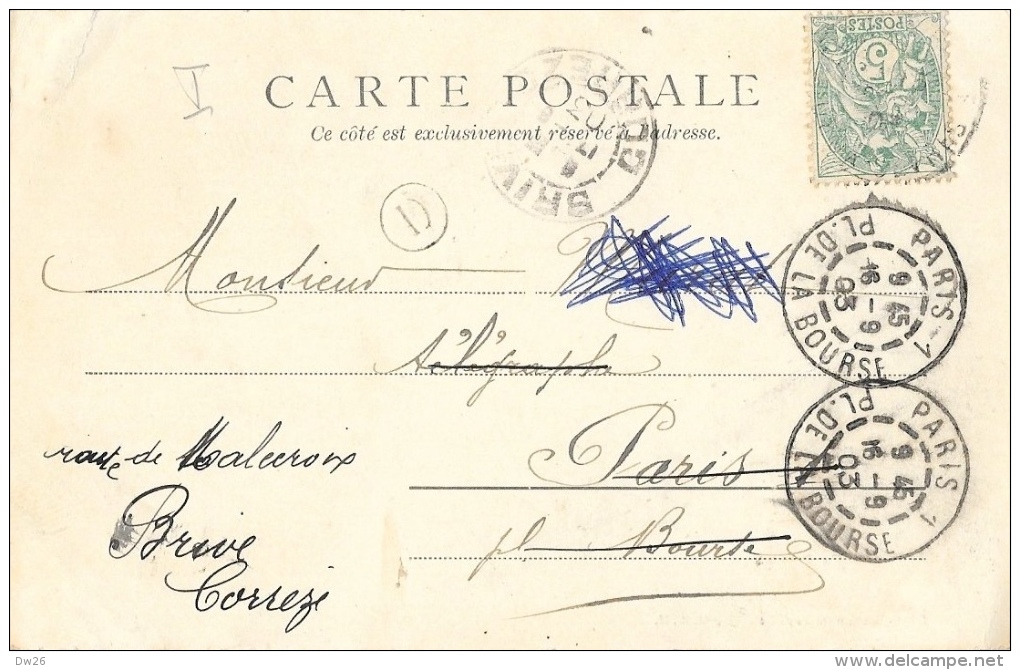 CARTE POSTALE
Ce côté est exclusivement réservé à l'adresse.
POSTES
5
D
Monsieur
télégraphe
Paris
pl Bourse
route de Malecroix
Brive
Corrèze
BRIVE
CORREZE
PARIS-1
9 45
16 - 9
03
PL. DE LA BOURSE
PARIS 1
9 45
16 - 9
03
PL. DE LA BOURSE
Dw26
www.delcampe.net